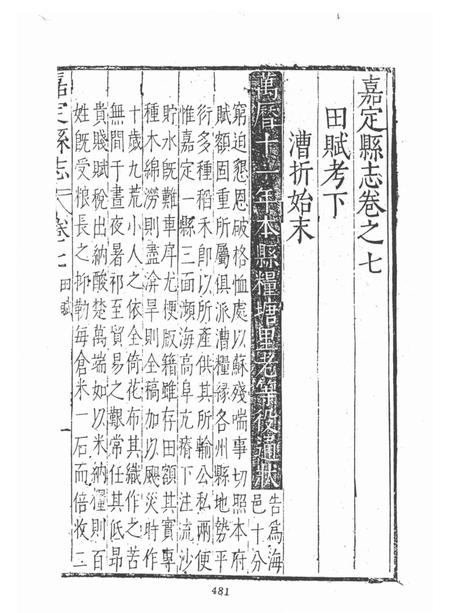 嘉定縣志卷之七
田賦考下
漕折始末
萬曆十一年本縣糧塘里老等役連狀告爲海邑十分
窮迫懇恩破格恤處以蘇殘喘事切照本府
賦額固重所屬俱派漕糧緣各州縣地勢平
衍多種稻禾卽以所產供其所輸公私兩便
惟嘉定一縣三面瀕海高阜亢瘠下注流沙
貯水旣難車戽尤梗版籍雖存田額其實專
種木綿澇則盡淪旱則全槁加以颶災時作
十歲九荒小人之依全倚花布其織作之苦
無間于晝夜暑祁至貿易之艱常任其低昂
貴賤賦稅出納酸楚萬端如以米納僅則百
姓旣受粮長之抑勒每倉米一石而倍收二
嘉定縣志 卷七 田賦 一
481